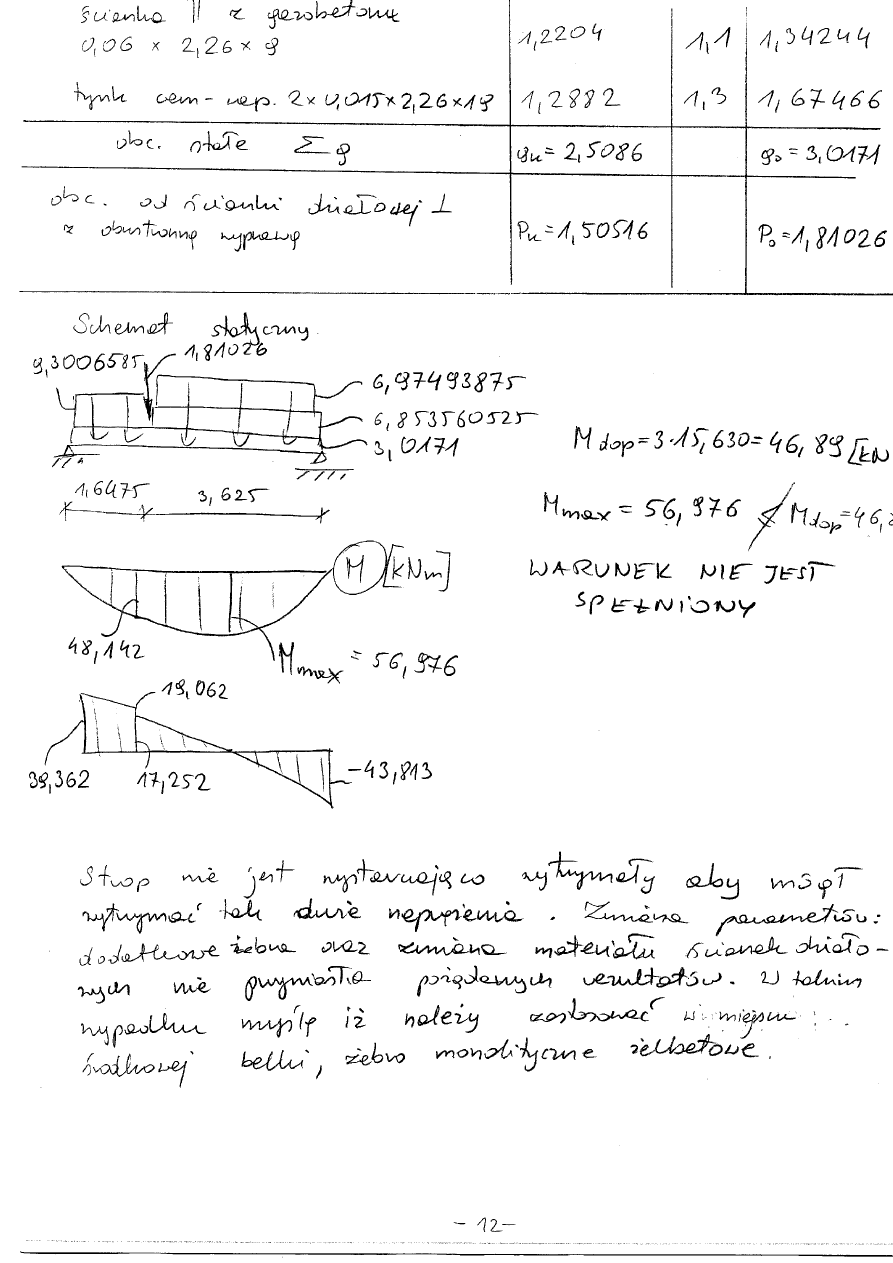 ścianka || z gazobetonu
0,06 × 2,26 × 9 1,2204 1,1 1,34244
tynk cem-wap. 2×0,015×2,26×19 1,2882 1,3 1,67466
obc. stałe Σ g gk = 2,5086 go = 3,0171
obc. od ścianki działowej ⊥
z obustronną wyprawą Pk = 1,50516 Po = 1,81026
Schemat statyczny
9,3006585 1,81026
6,97493875
6,853560525
3,0171
1,6475 3,625
M dop = 3·15,630 = 46,89 [kN
Mmax = 56,976 ≮ Mdop = 46,
WARUNEK NIE JEST
SPEŁNIONY
M [kNm]
48,142
Mmax = 56,976
19,062
39,362 17,252 -43,813
Strop nie jest wystarczająco wytrzymały aby mógł
wytrzymać tak duże naprężenia. Zmiana parametrów:
dodatkowe żebra oraz zmiana materiału ścianek działo-
wych nie przyniosła pożądanych rezultatów. W takim
wypadku myślę iż należy zastosować w miejscu
środkowej belki, żebro monolityczne żelbetowe.
- 12 -